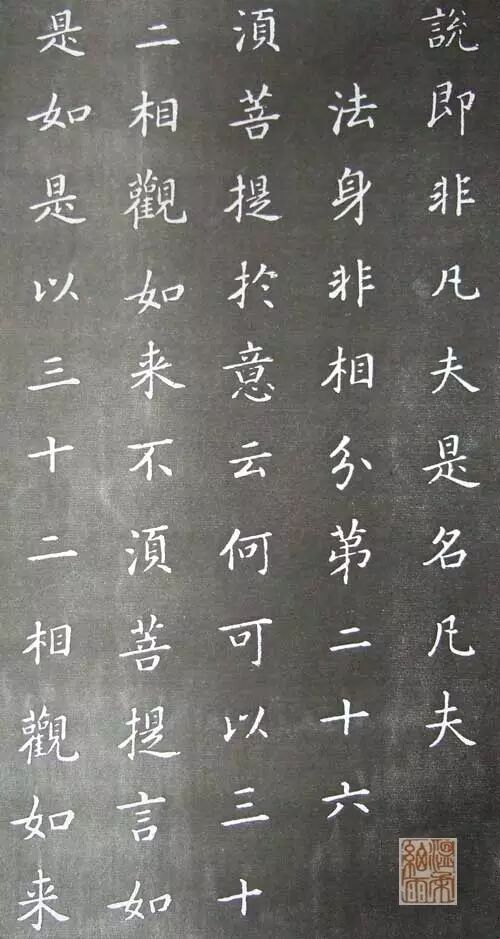 說即非凡夫是名凡夫
法身非相分第二十六
須菩提於意云何可以三十
二相觀如来不須菩提言如
是如是以三十二相觀如来